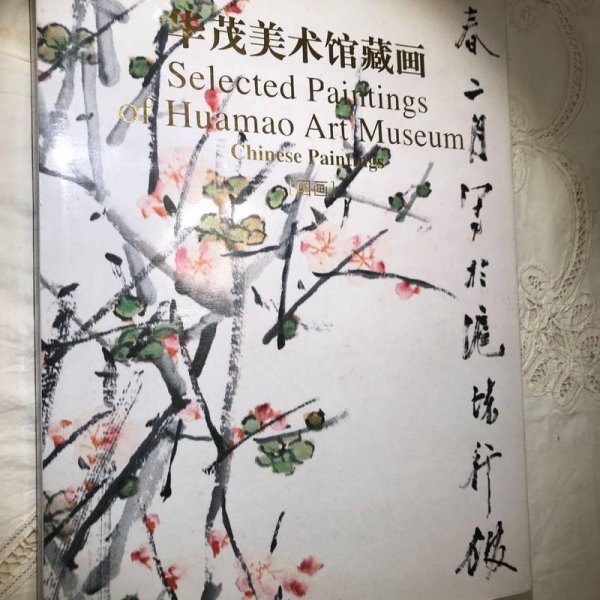 华茂美术馆藏画
Selected Paintings
of Huamao Art Museum
Chinese Paintings
[国画]
春二月写于滬城行